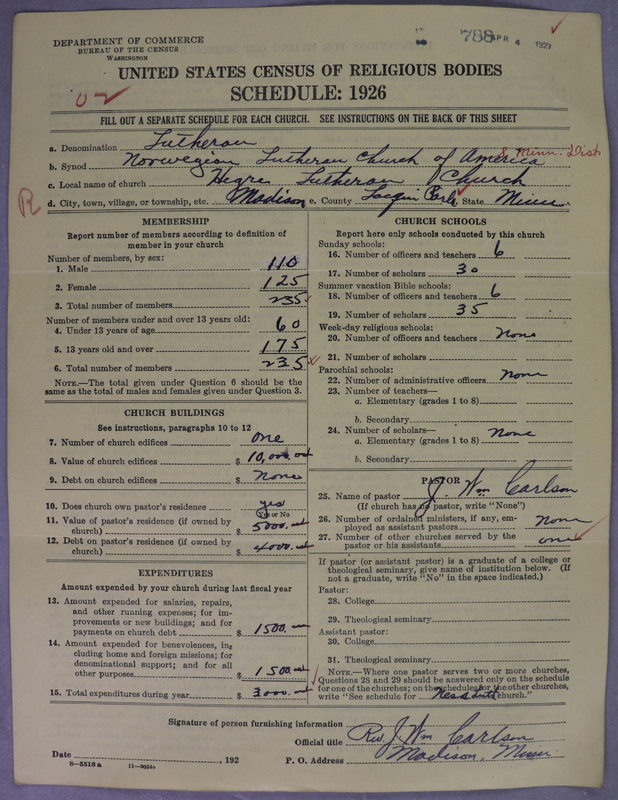 DEPARTMENT OF COMMERCE
BUREAU OF THE CENSUS
WASHINGTON
788 APR 4 1927
UNITED STATES CENSUS OF RELIGIOUS BODIES
SCHEDULE: 1926
FILL OUT A SEPARATE SCHEDULE FOR EACH CHURCH. SEE INSTRUCTIONS ON THE BACK OF THIS SHEET
a. Denomination Lutheran
b. Synod Norwegian Lutheran Church of America S. Minn. Dist.
c. Local name of church Hegre Lutheran Church
d. City, town, village, or township, etc. Madison e. County Lacqui Parle State Minn.
R
MEMBERSHIP
Report number of members according to definition of
member in your church
Number of members, by sex:
1. Male 110
2. Female 125
3. Total number of members 235
Number of members under and over 13 years old:
4. Under 13 years of age 60
5. 13 years old and over 175
6. Total number of members 235
NOTE.—The total given under Question 6 should be the
same as the total of males and females given under Question 3.
CHURCH BUILDINGS
See instructions, paragraphs 10 to 12
7. Number of church edifices one
8. Value of church edifices $ 10,000.00
9. Debt on church edifices $ None
10. Does church own pastor's residence yes
Yes or No
11. Value of pastor's residence (if owned by
church) $ 5000.00
12. Debt on pastor's residence (if owned by
church) $ 4000.00
EXPENDITURES
Amount expended by your church during last fiscal year
13. Amount expended for salaries, repairs,
and other running expenses; for im-
provements or new buildings; and for
payments on church debt $ 1500.00
14. Amount expended for benevolences, in-
cluding home and foreign missions; for
denominational support; and for all
other purposes $ 1500.00
15. Total expenditures during year $ 3000.00
CHURCH SCHOOLS
Report here only schools conducted by this church
Sunday schools:
16. Number of officers and teachers 6
17. Number of scholars 30
Summer vacation Bible schools:
18. Number of officers and teachers 6
19. Number of scholars 35
Week-day religious schools:
20. Number of officers and teachers None
21. Number of scholars
Parochial schools:
22. Number of administrative officers None
23. Number of teachers—
a. Elementary (grades 1 to 8)
b. Secondary
24. Number of scholars—
a. Elementary (grades 1 to 8) None
b. Secondary
PASTOR
25. Name of pastor J. Wm Carlson
(If church has no pastor, write "None")
26. Number of ordained ministers, if any, em-
ployed as assistant pastors None
27. Number of other churches served by the
pastor or his assistants one
If pastor (or assistant pastor) is a graduate of a college or
theological seminary, give name of institution below. (If
not a graduate, write "No" in the space indicated.)
Pastor:
28. College
29. Theological seminary
Assistant pastor:
30. College
31. Theological seminary
NOTE.—Where one pastor serves two or more churches,
Questions 28 and 29 should be answered only on the schedule
for one of the churches; on the schedules for the other churches,
write "See schedule for church."
Signature of person furnishing information
Official title Rev. J. Wm Carlson
Date , 192 P. O. Address Madison, Minn.
8-5318 a 11-9654